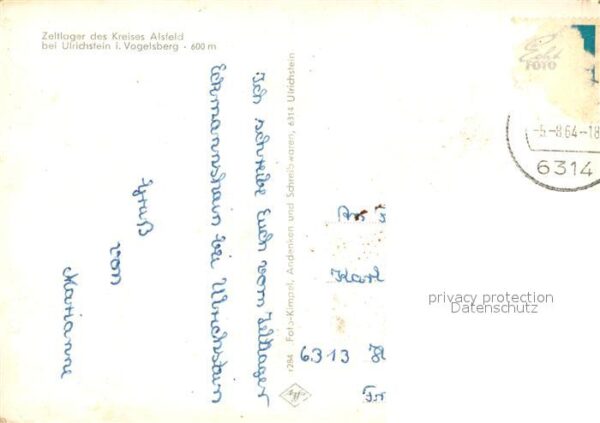 Zeltlager des Kreises Alsfeld
bei Ulrichstein i. Vogelsberg · 600 m
Ich schreibe Euch vom Zeltlager
Eckmannshain bei Ulrichstein
Gruß
von
Marianne
r284 Foto-Kimpel, Andenken und Schreibwaren, 6314 Ulrichstein
Echt
FOTO
-5.-8.64-18
6314
An
Karl
6313 H
privacy protection
Datenschutz